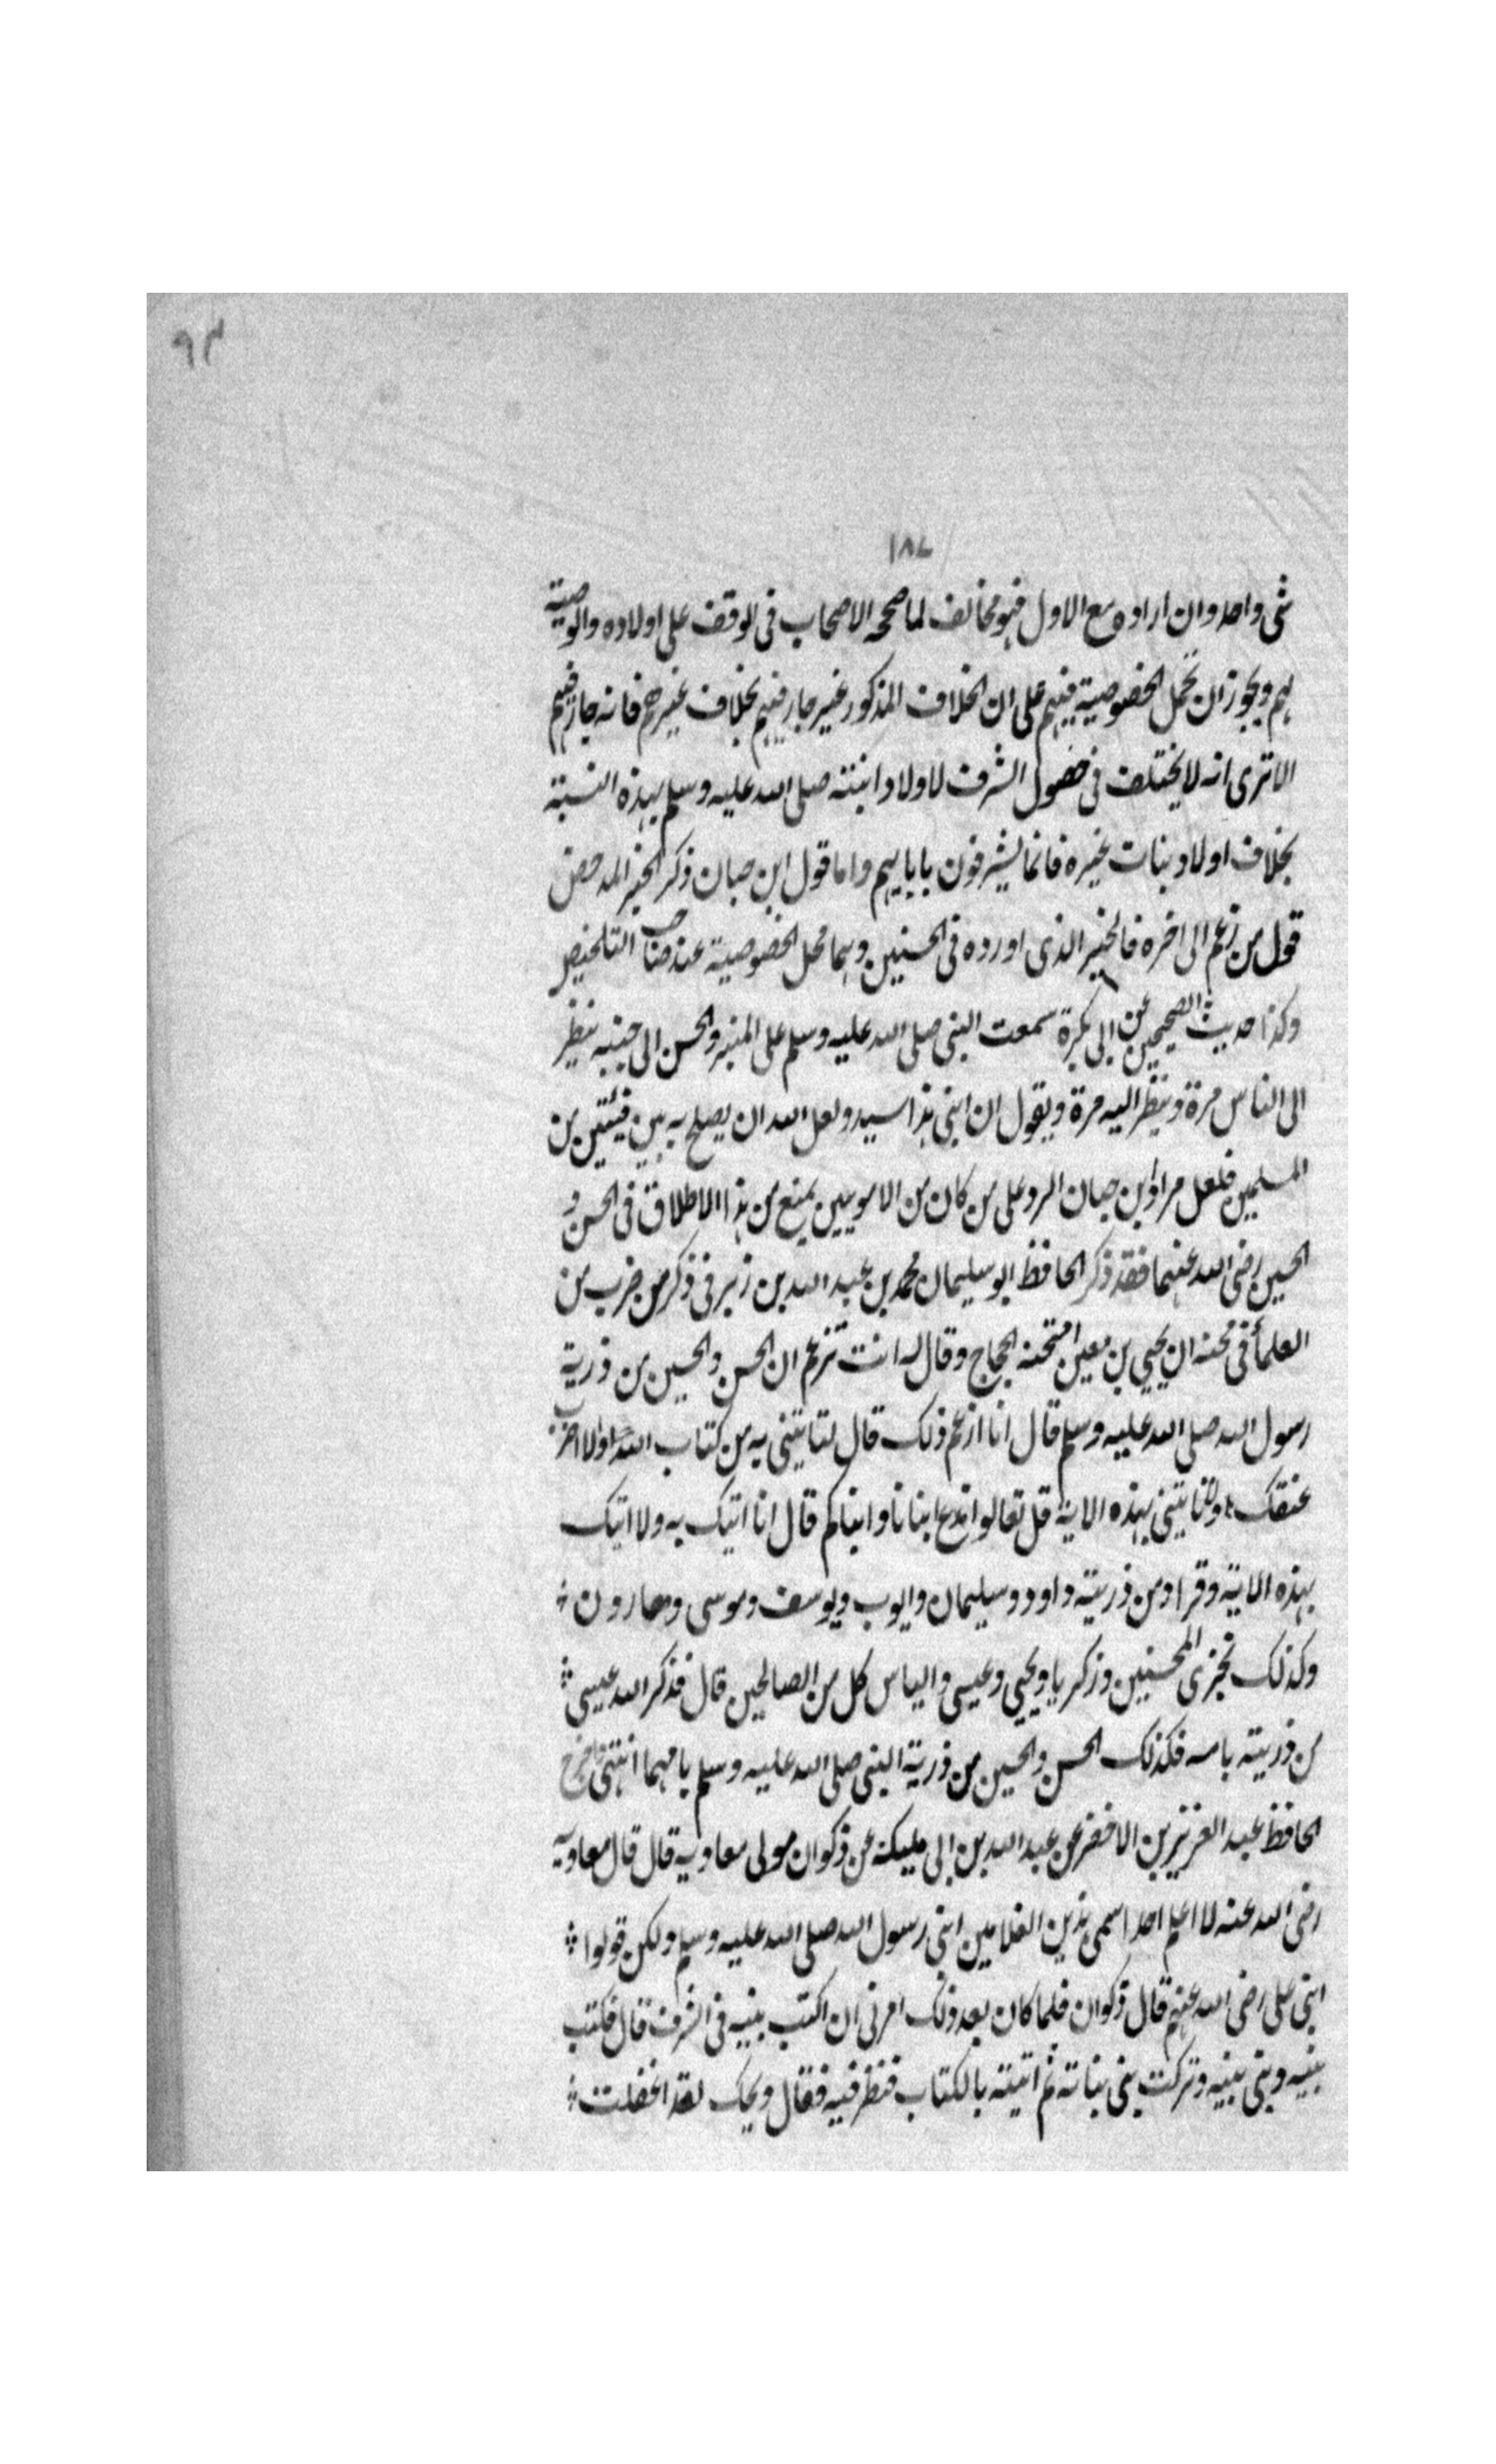 ٩٣
١٨٧
شى واحد وان اراده مع الاول فهو مخالف لما صححه الاصحاب فى الوقف على اولاده والوصية
لهم ويجوز ان تحمل الخصوصية فيهم على ان الخلاف المذكور غير جار فيهم بخلاف غيرهم فانه جار فيهم
الا ترى انه لا يختلف فى حصول الشرف لاولاد ابنته صلى الله عليه وسلم بهذه النسبة
بخلاف اولاد بنات غيره فانما يشرفون باباييهم واما قول ابن حبان ذكر الخبر المدحض
قول من زعم الى اخره فالخبر الذى اورده فى الحسنين وهما محل الخصوصية عند صاحب التلخيص
وكذا حديث الصحيحين عن ابى بكرة سمعت النبى صلى الله عليه وسلم على المنبر والحسن الى جنبه ينظر
الى الناس مرة وينظر اليه مرة ويقول ان ابنى هذا سيد ولعل الله ان يصلح به بين فئتين من
المسلمين فلعل مراد ابن حبان الرد على من كان من الامويين يمنع من هذا الاطلاق فى الحسن و
الحسين رضى الله عنهما فقد ذكر الحافظ ابو سليمان محمد بن عبد الله بن زبر فى ذكر من ضرب من
العلمأ فى محنه ان يحيى بن معين امتحنه الحجاج وقال له انت تزعم ان الحسن والحسين من ذرية
رسول الله صلى الله عليه وسلم قال انا ازعم ذلك قال لتاتينى به من كتاب الله او لاضربن
عنقك ولا تاتينى بهذه الاية قل تعالوا ندع ابنانا وابناكم قال انا اتيك به ولا اتيك
بهذه الاية وقرا ومن ذريته داود وسليمان وايوب ويوسف وموسى وهارون
وكذلك نجزى المحسنين وزكريا ويحيى وعيسى والياس كل من الصالحين قال فذكر الله عيسى
من ذريته بامه فكذلك الحسن والحسين من ذرية النبى صلى الله عليه وسلم بامهما انتهى
الحافظ عبد العزيز بن الاخضر عن عبد الله بن ابى مليكة عن ذكوان مولى معاوية قال قال معاوية
رضى الله عنه لا اعلم احدا سمى هذين الغلامين ابنى رسول الله صلى الله عليه وسلم ولكن قولوا
ابنى على رضى الله عنهم قال ذكوان فلما كان بعد ذلك امرنى ان اكتب بنيه فى الشرف قال فكتبت
بنيه وبنى بنيه وتركت بنى بناته ثم اتيته بالكتاب فنظر فيه فقال ويحك لقد اغفلت